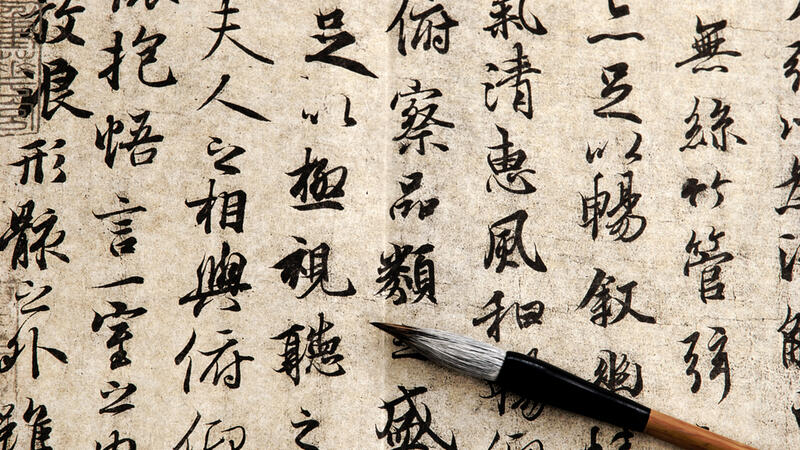 無絲竹管弦
亦足以暢叙幽情
氣清惠風和暢仰
俯察品類之盛
足以極視聽之
夫人之相與俯仰
懷抱悟言一室之內
放浪形骸之外雖